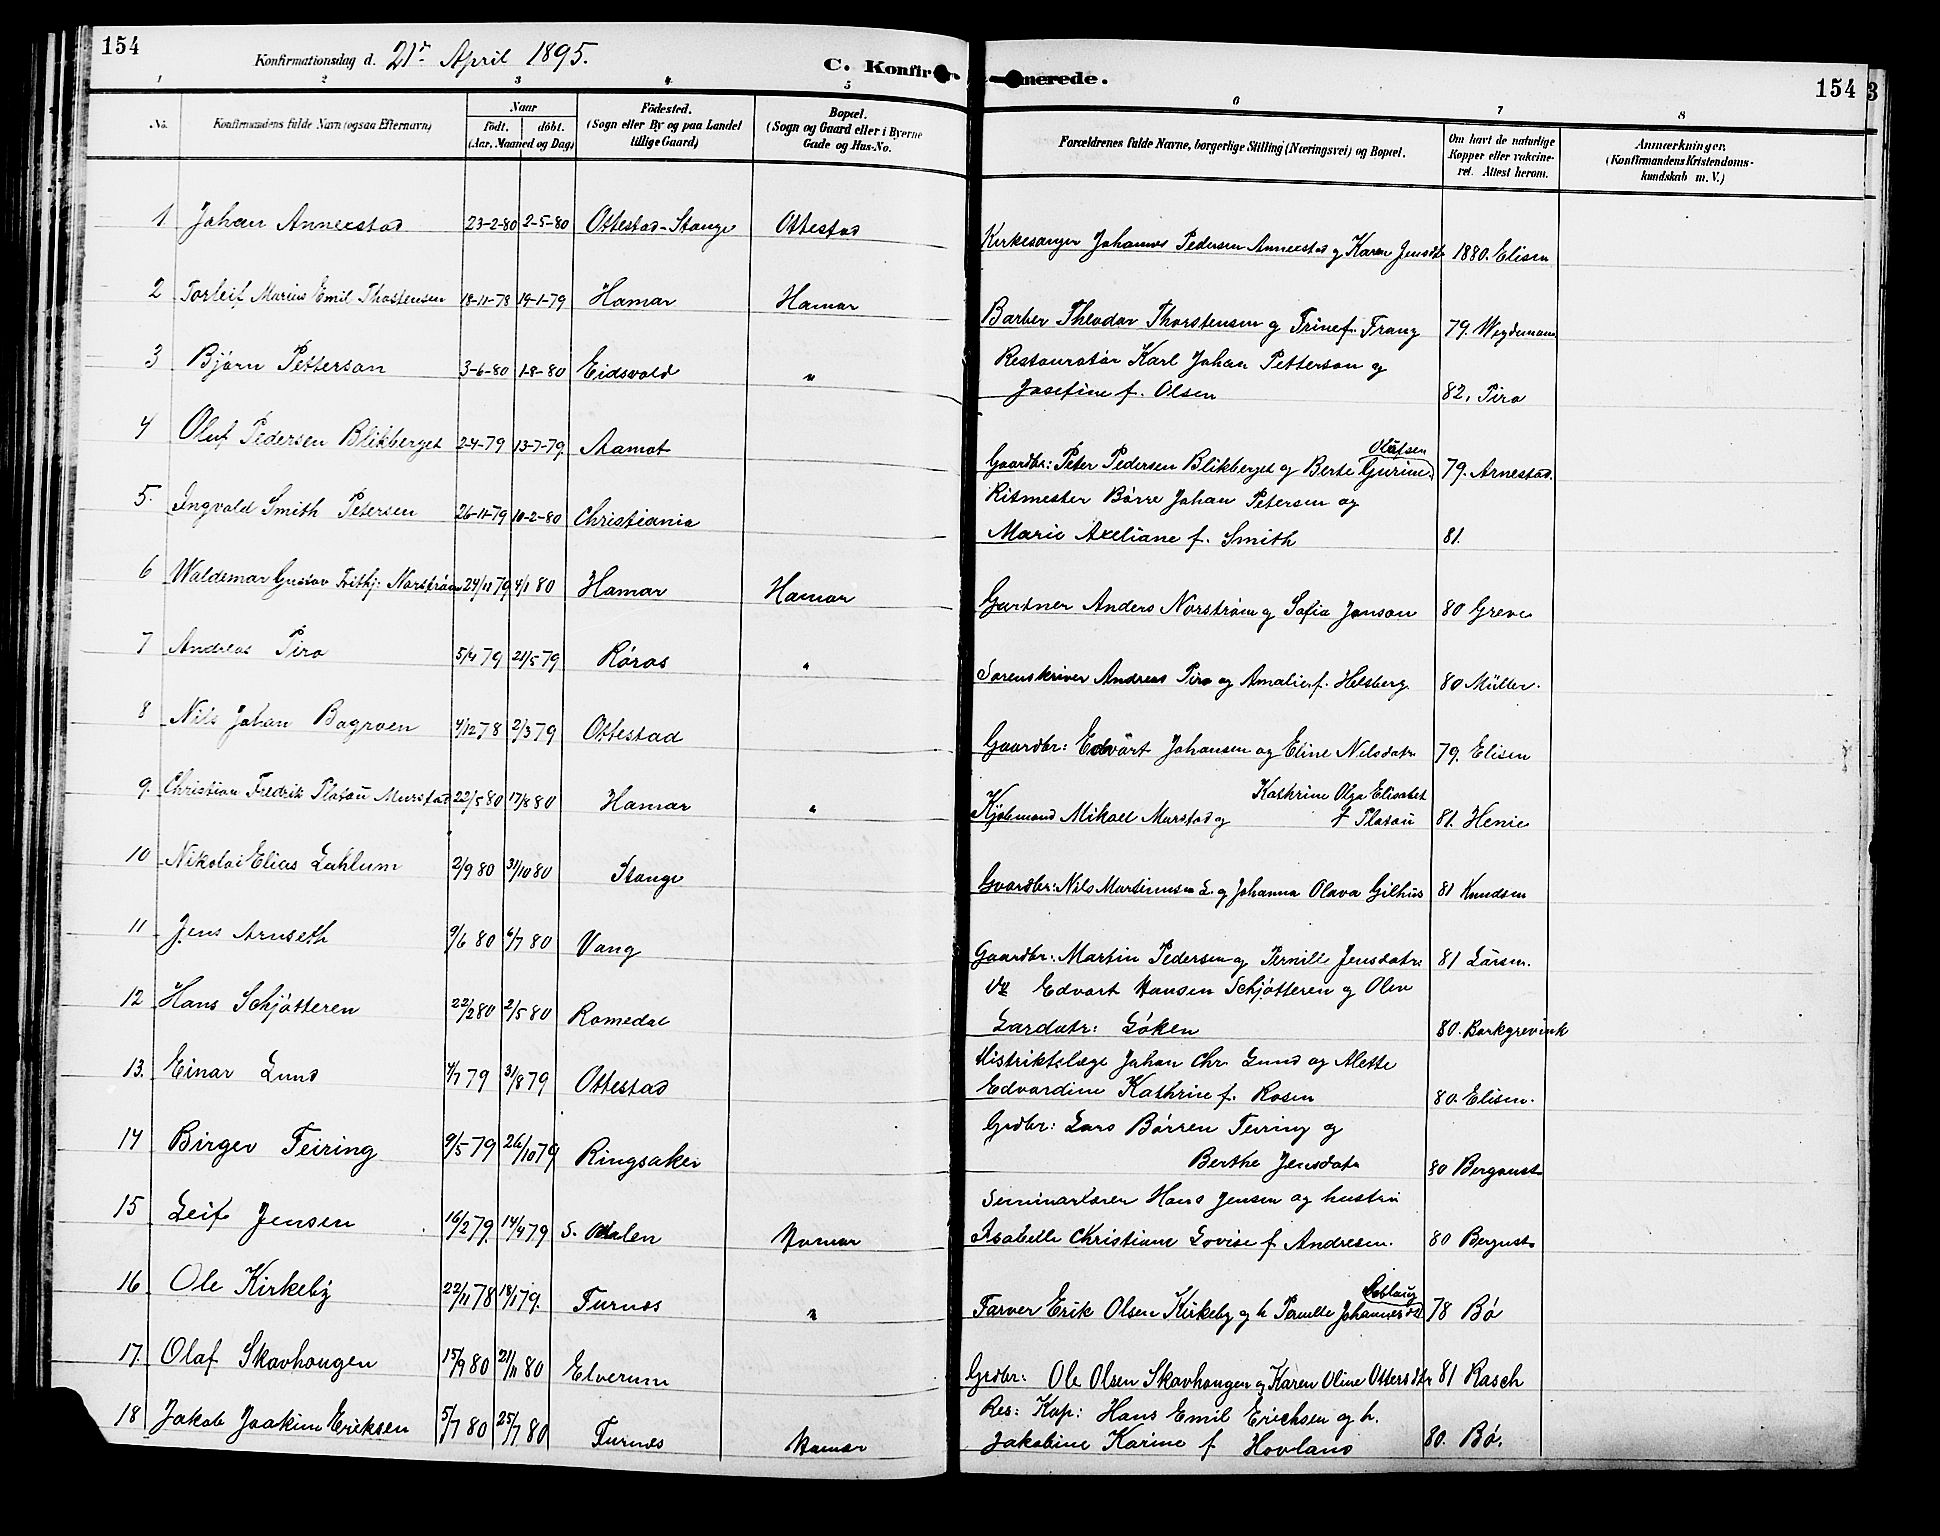 154
Konfirmationsdag d. 21de April 1895.
C. Konfirmerede.
154
1 2 3 4 5 6 7 8
No.
Konfirmandens fulde Navn (ogsaa Efternavn)
Naar
födt. döbt.
(Aar, Maaned og Dag)
Födested.
(Sogn eller By og paa Landet
tillige Gaard)
Bopæl.
(Sogn og Gaard eller i Byerne
Gade og Hus-No.
Forældrenes fulde Navne, borgerlige Stilling (Næringsvei) og Bopæl.
Om havt de naturlige
Kopper eller vakcine-
ret. Attest herom.
Anmærkninger.
(Konfirmandens Kristendoms-
kundskab m. V.)
1 Johan Anneestad 23-2-80 2-5-80 Ottestad-Stange Ottestad Kirkesanger Johannes Pedersen Anneestad og Karen Jensdtr 1880. Elisen
2 Torleif Marius Emil Thostensen 18-11-78 19-1-79 Hamar Hamar Barber Theodor Thorstensen og Trine f. Franz 79. Weydemann
3 Bjørn Petterson 3-6-80 1-8-80 Eidsvold " Restauratør Karl Johan Petterson og
Josefine f. Olsen 82. Piro
4 Oluf Pedersen Blikberget 2-4-79 13-7-79. Aamot Gaardbr: Peter Pedersen Blikberget og Berte Gurine Olafsen 79. Arnestad.
5. Ingvald Smith Petersen 26-11-79 10-2-80 Christiania Ritmester Børre Johan Petersen og
Marie Axeliane f. Smith 81.
6 Waldemar Gustav Frithj: Norstrøm 24/11 79 4/1 80 Hamar Hamar Gartner Anders Norstrøm og Sofia Janson 80 Greve
7 Andreas Piro 5/4 79 21/5 79 Røros " Sorenskriver Andreas Piro og Amalie f. Helsberg. 80 Müller.
8 Nils Johan Bagroen 4/12 78 2/3 79 Ottestad Gaardbr: Edvart Johansen og Eline Nilsdatr 79. Elisen
9. Christian Fredrik Platou Murstad 22/5 80 17/8 80 Hamar " Kjøbmand Mikael Murstad og Kathrine Olga Elisabet
f Platou 81. Henie
10 Nikolai Elias Lahlum 2/9 80 31/10 80 Stange Gaardbr: Nils Martinusen L. og Johanna Olava Gilhus 81 Knudsen
11 Jens Arnseth 9/6 80 6/7 80 Vang Gaardbr: Martin Pedersen og Pernille Jensdatr: 81 Larsen.
12 Hans Schjøtteren 22/2 80 2/5 80 Romedal Edvart Hansen Schjøtteren og Olev
Larsdatr: Løken 80. Borkgrevink
13. Einar Lund 4/7 79 31/8 79 Ottestad Distriktslæge Johan Chr. Lund og Alette
Edvardine Kathrine f. Rosen 80. Elisen.
14 Birger Feiring 9/5 79 26/10 79 Ringsaker Grdbr: Lars Børren Feiring og
Berthe Jensdatr 80 Bergqust
15 Leif Jensen 16/2 79. 14/4 79 S. Odalen Hamar Seminarlærer Hans Jensen og hustru
Isabelle Christiane Lovise f Andresen. 80 Bergust
16 Ole Kirkeby 22/11 78 18/1 79. Furnes " Farver Erik Olsen Kirkeby og h. Pernille Johannesdtr 78 Bø
17. Olaf Skavhougen 15/9 80 21/11 80 Elverum Grdbr: Ole Olsen Skavhougen og Karen Oline Ottersdtr 81 Rasch
18 Jakob Joakim Eriksen 5/7 80 25/7 80 Furnes Hamar Res: Kap: Hans Emil Erichsen og h.
Jakobine Karine f Hovland 80. Bø.